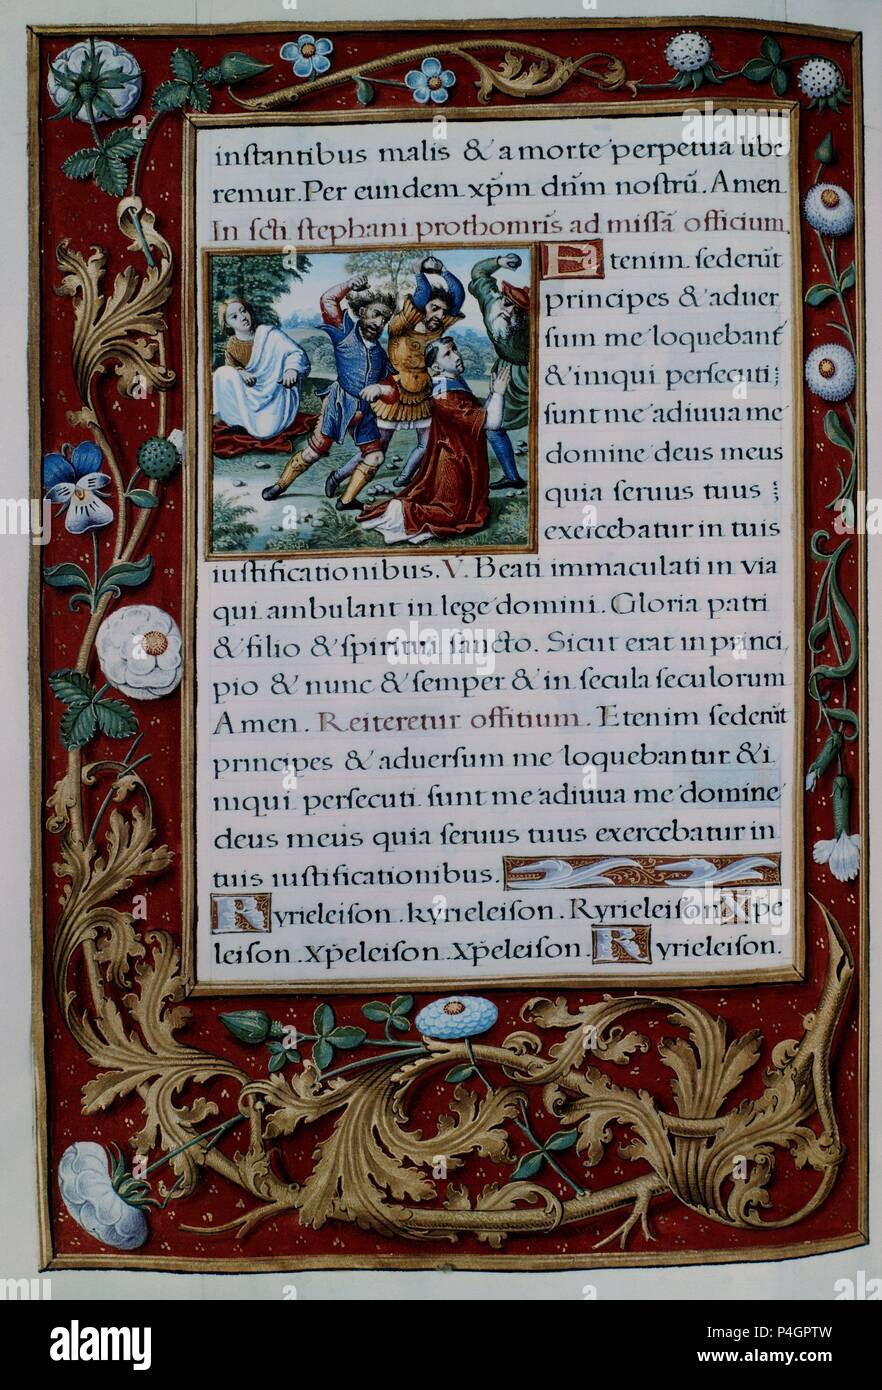 instantibus malis & a morte perpetua libe
remur. Per eundem xp̄m dn̄m nostrū. Amen
In scti stephani prothomr̄is ad missā officium
Etenim sederūt
principes & aduer
sum me loquebant
& iniqui persecuti
sunt me adiuua me
domine deus meus
quia seruus tuus
exercebatur in tuis
iustificationibus. V. Beati immaculati in via
qui ambulant in lege domini. Gloria patri
& filio & spiritui sancto. Sicut erat in princi
pio & nunc & semper & in secula seculorum
Amen. Reiteretur offitium. Etenim sederūt
principes & aduersum me loquebantur & i
niqui persecuti sunt me adiuua me domine
deus meus quia seruus tuus exercebatur in
tuis iustificationibus.
Kyrieleison. kyrieleison. Kyrieleison Xp̄e
leison. Xp̄eleison. Xp̄eleison. Kyrieleison.
alamy
Image ID: P4GPTW
www.alamy.com